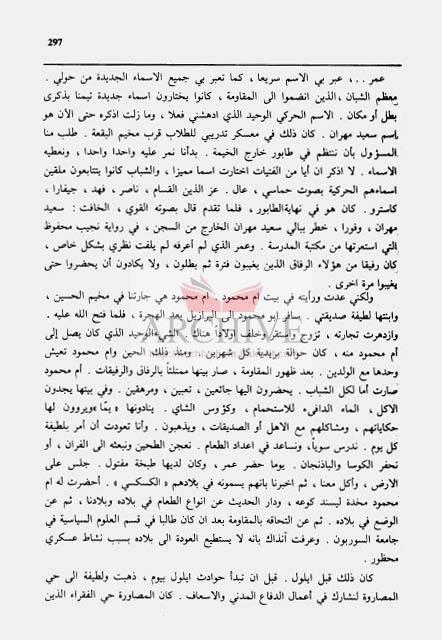 297
عمر .. ، عبر بي الاسم سريعا ، كما تعبر بي جميع الاسماء الجديدة من حولي .
معظم الشبان ، الذين انضموا الى المقاومة ، كانوا يختارون اسماء جديدة تيمنا بذكرى
بطل أو مكان . الاسم الحركي الوحيد الذي ادهشني فعلا ، وما زلت اذكره حتى الآن هو
اسم سعيد مهران . كان ذلك في معسكر تدريبي للطلاب قرب مخيم البقعة . طلب منا
المسؤول بأن ننتظم في طابور خارج الخيمة . بدأنا نمر عليه واحدا واحدا ، ونعطيه
الاسماء . لا اذكر ان أيا من الفتيات اختارت اسما مميزا ، والشباب كانوا يتتابعون ملقين
اسماءهم الحركية بصوت حماسي ، عال . عز الدين القسام ، ناصر ، فهد ، جيفارا ،
كاسترو . كان هو في نهاية الطابور ، فلما تقدم قال بصوته القوي ، الخافت : سعيد
مهران ، وفورا ، خطر ببالي سعيد مهران الخارج من السجن ، في رواية نجيب محفوظ
التي استعرتها من مكتبة المدرسة . وعمر الذي لم أعرفه لم يلفت نظري بشكل خاص ،
كان رفيقا من هؤلاء الرفاق الذين يغيبون فترة ثم يطلون ، ولا يكادون أن يحضروا حتى
يغيبوا مرة اخرى .
ولكني عدت ورأيته في بيت ام محمود . ام محمود هي جارتنا في مخيم الحسين ،
وابنتها لطيفة صديقتي . سافر ابو محمود الى البرازيل بعد الهجرة ، فلما فتح الله عليه .
وازدهرت تجارته ، تزوج واستقر وخلف اولادا هناك . الشيء الوحيد الذي كان يصل إلى
أم محمود منه ، كان حوالة بريدية كل شهرين . ومنذ ذلك الحين وام محمود تعيش
وحدها مع الولدين . بعد ظهور المقاومة ، صار بيتها ممتلئا بالرفاق والرفيقات . أم محمود
صارت أما لكل الشباب . يحضرون اليها جائعين ، تعبين ، ومرهقين . وفي بيتها يجدون
الاكل ، الماء الدافىء للاستحمام ، وكؤوس الشاي . ينادونها « يما » ويروون لها
حكاياتهم ، ومشاكلهم مع الاهل أو الصديقات ، ويذهبون . وأنا تعودت أن أمر بلطيفة
كل يوم . ندرس سويا ، ونساعد في اعداد الطعام . نعجن الطحين ونبعثه الى الفران ، أو
نحفر الكوسا والباذنجان . يوما حضر عمر ، وكان لديها طبخة مفتول . جلس على
الارض ، وأكل معنا ، ثم اخبرنا بانهم يسمونه في بلادهم « الكسكسي » . أحضرت له ام
محمود مخدة ليسند كوعه ، ودار الحديث عن انواع الطعام في بلاده وبلادنا ، ثم عن
الوضع في بلاده . ثم عن التحاقه بالمقاومة بعد ان كان طالبا في قسم العلوم السياسية في
جامعة السوربون . وعرفت أنذاك بانه لا يستطيع العودة الى بلاده بسبب نشاط عسكري
محظور .
كان ذلك قبل ايلول . قبل ان تبدأ حوادث ايلول بيوم ، ذهبت ولطيفة الى حي
المصاروة لنشارك في أعمال الدفاع المدني والاسعاف . كان المصاورة حي الفقراء الذين
ARCHIVE